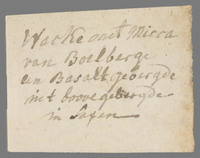 Wacke met Micca
van Boelberge
een Basalt gebergde
int boove gebergde
in Saxen